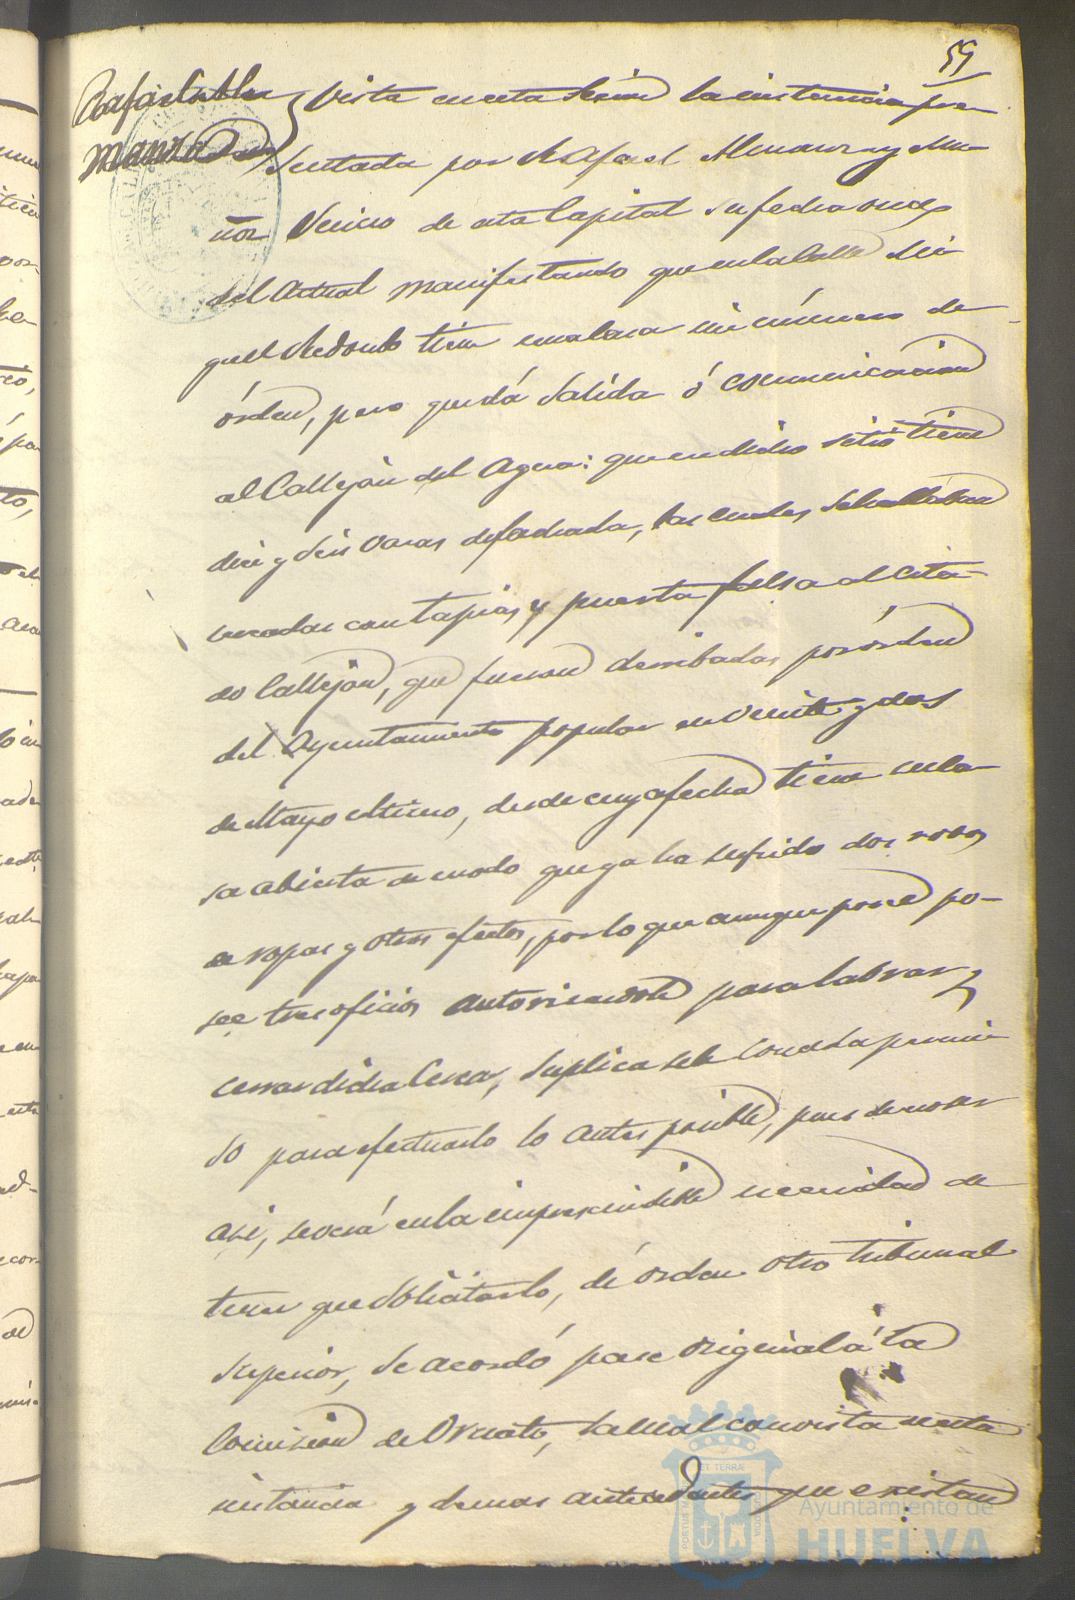 59
Rafael Al
manza
Vista en esta sesion la instancia pre-
sentada por Rafael Almanza y Mu-
ñoz Vecino de esta Capital su fecha once
del actual manifestando que en la Calle Mi-
guel Redondo tiene una casa sin número de
órden, pero que dá salida ó comunicacion
al Callejon del Agua: que en dicho sitio tiene
diez y seis varas de fachada, las cuales se hallaban
cercadas con tapias y puerta falsa al cita-
do Callejon, que fueron derribadas por órden
del Ayuntamiento popular en veinte y dos
de Mayo último, desde cuya fecha tiene su ca-
sa abierta de modo que ya ha sufrido dos robos
de ropas y otros efectos, por lo que aunque posee po-
see tres oficios autorisandole para labrar y
cerrar dicha Cerca, suplica se le conceda permi-
so para efectuarlo lo antes posible, pues de no ser
asi, se verá en la imprescindible necesidad de
tener que solicitarlo, de órden otro tribunal
superior, se acordó pase original á la
Comision de Ornato, la cual con vista de esta
instancia y demas antecedentes que existan
Ayuntamiento de
HUELVA